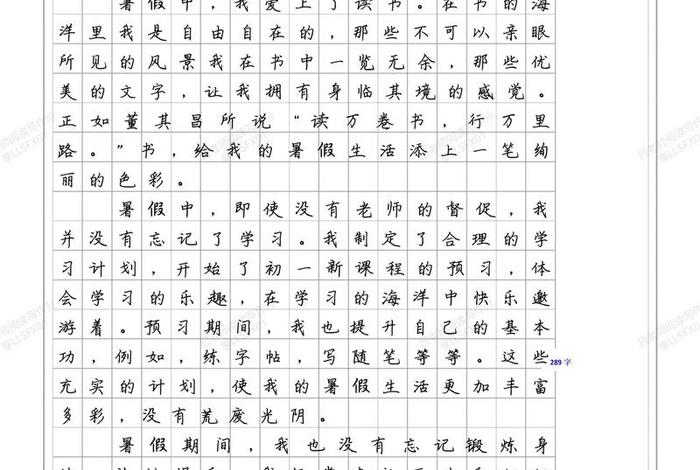 暑假中，我爱上了读书。在书的海
洋里我是自由自在的，那些不可以亲眼
所见的风景我在书中一览无余，那些优
美的文字，让我拥有身临其境的感觉。
正如董其昌所说“读万卷书，行万里
路。”书，给我的暑假生活添上一笔绚
丽的色彩。
暑假中，即使没有老师的督促，我
并没有忘记了学习。我制定了合理的学
习计划，开始了初一新课程的预习，体
会学习的乐趣，在学习的海洋中快乐遨
游着。预习期间，我也提升自己的基本
功，例如，练字帖，写随笔等等。这些
289 字
充实的计划，使我的暑假生活更加丰富
多彩，没有荒废光阴。
暑假期间，我也没有忘记锻炼身